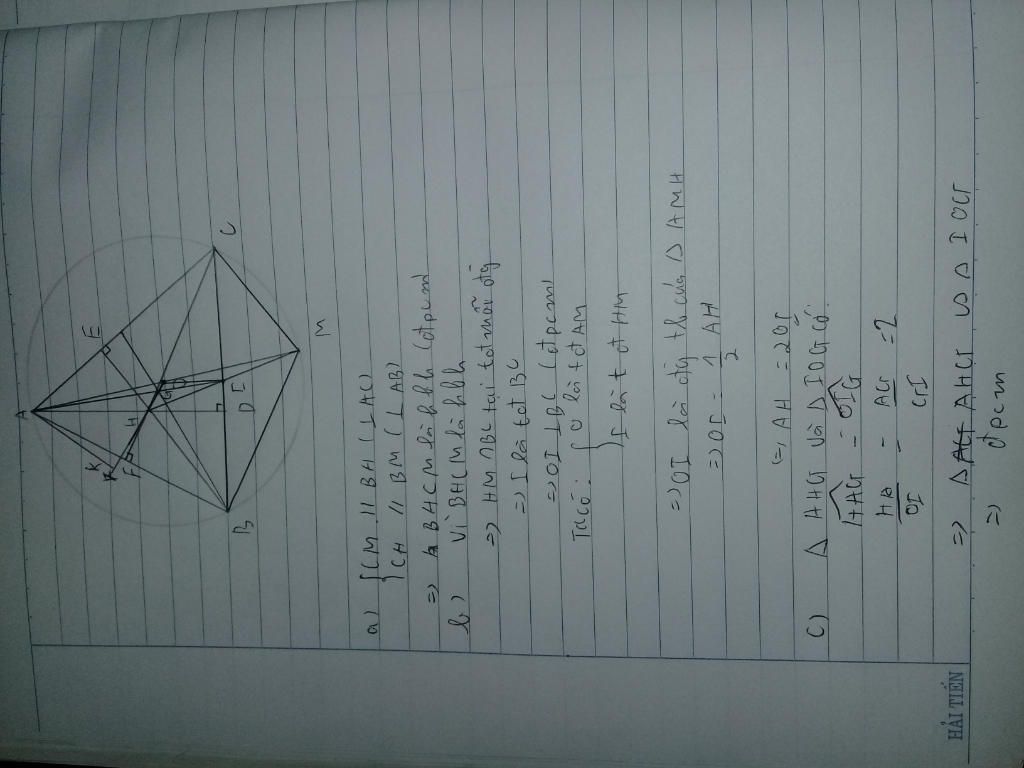 A
K
E
F
H
G
O
B
D
I
C
M
a) { CM // BH (⊥ AC)
CH // BM (⊥ AB)
=> BHCM là hbh (đpcm)
b) Vì BHCM là hbh
=> HM ∩ BC tại tđ mỗi đg
=> I là tđ BC
=> OI ⊥ BC (đpcm)
Ta có: { O là tđ AM
I là tđ HM
=> OI là đg tb của Δ AMH
=> OI = 1/2 AH
=> AH = 2OI
c) Δ AHG và Δ IOG có:
HAG = OIG
= AG/GI = 2
=> Δ AHG ∽ Δ IOG
=> đpcm
HẢI TIẾN